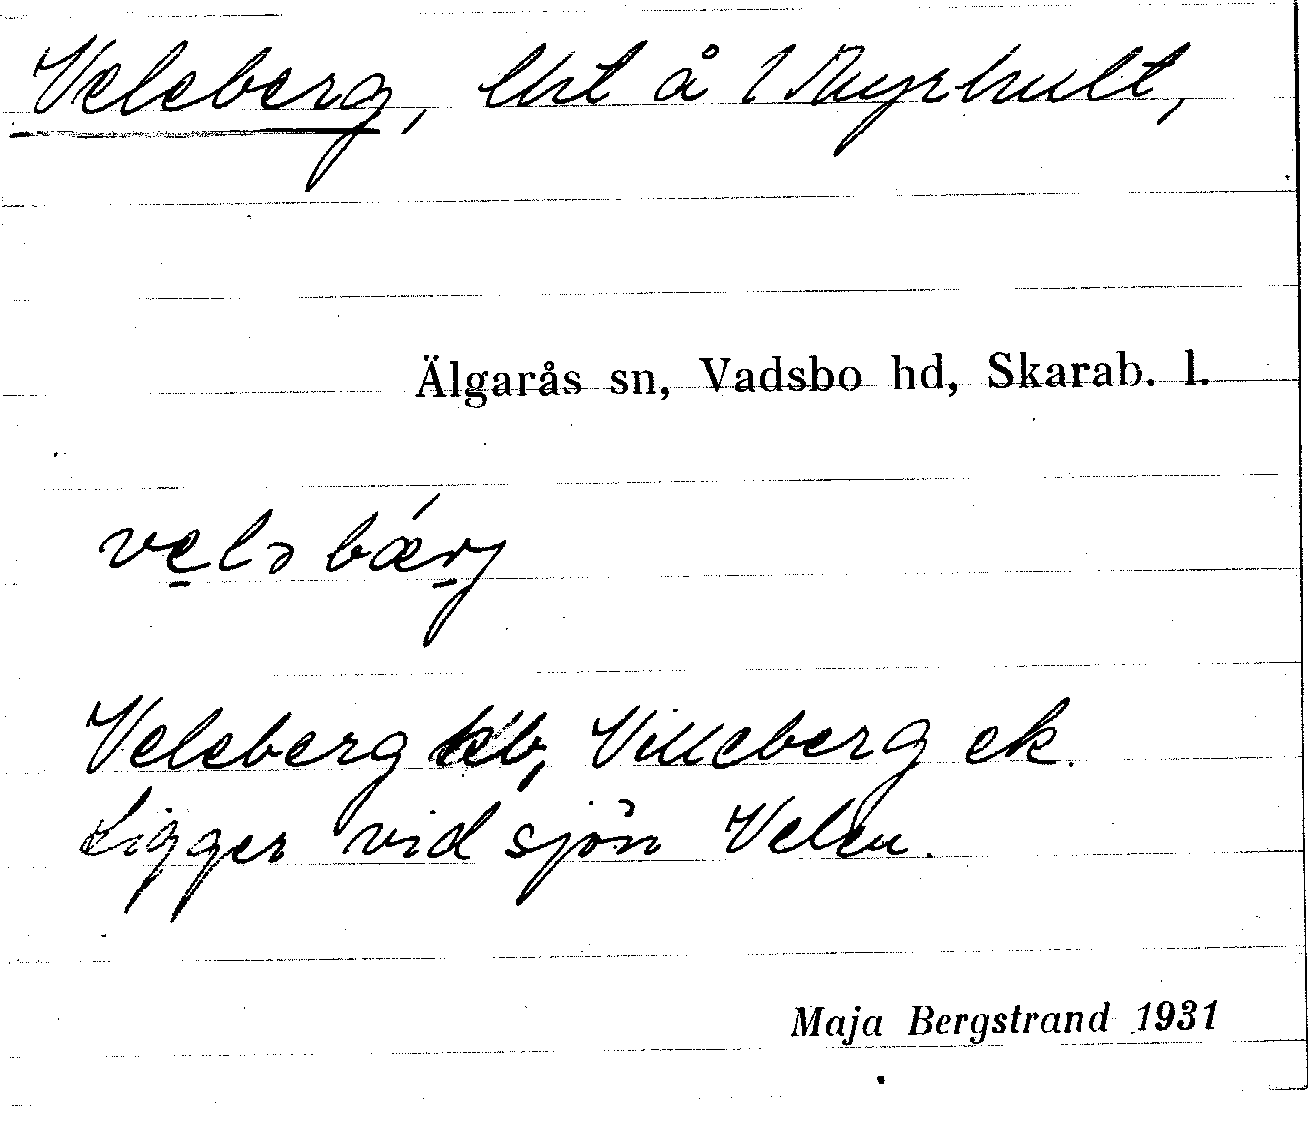 Veleberg, lht å 1 Myrhult,
Älgarås sn, Vadsbo hd, Skarab. l.
velə bǽrj
Veleberg kb, Villeberg ek.
Ligger vid sjön Velen.
Maja Bergstrand 1931